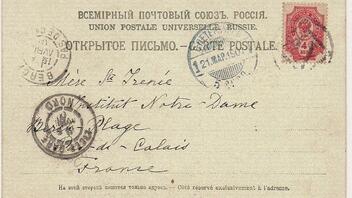 ВСЕМІРНЫЙ ПОЧТОВЫЙ СОЮЗЪ. РОССІЯ.
UNION POSTALE UNIVERSELLE. RUSSIE.
ОТКРЫТОЕ ПИСЬМО.—CARTE POSTALE.
4
Mère Ste Irénée
Institut Notre-Dame
Plage
-de-Calais
Franse
На этой сторонѣ пишется только адресъ.—Côté réservé exclusivement à l'adresse.